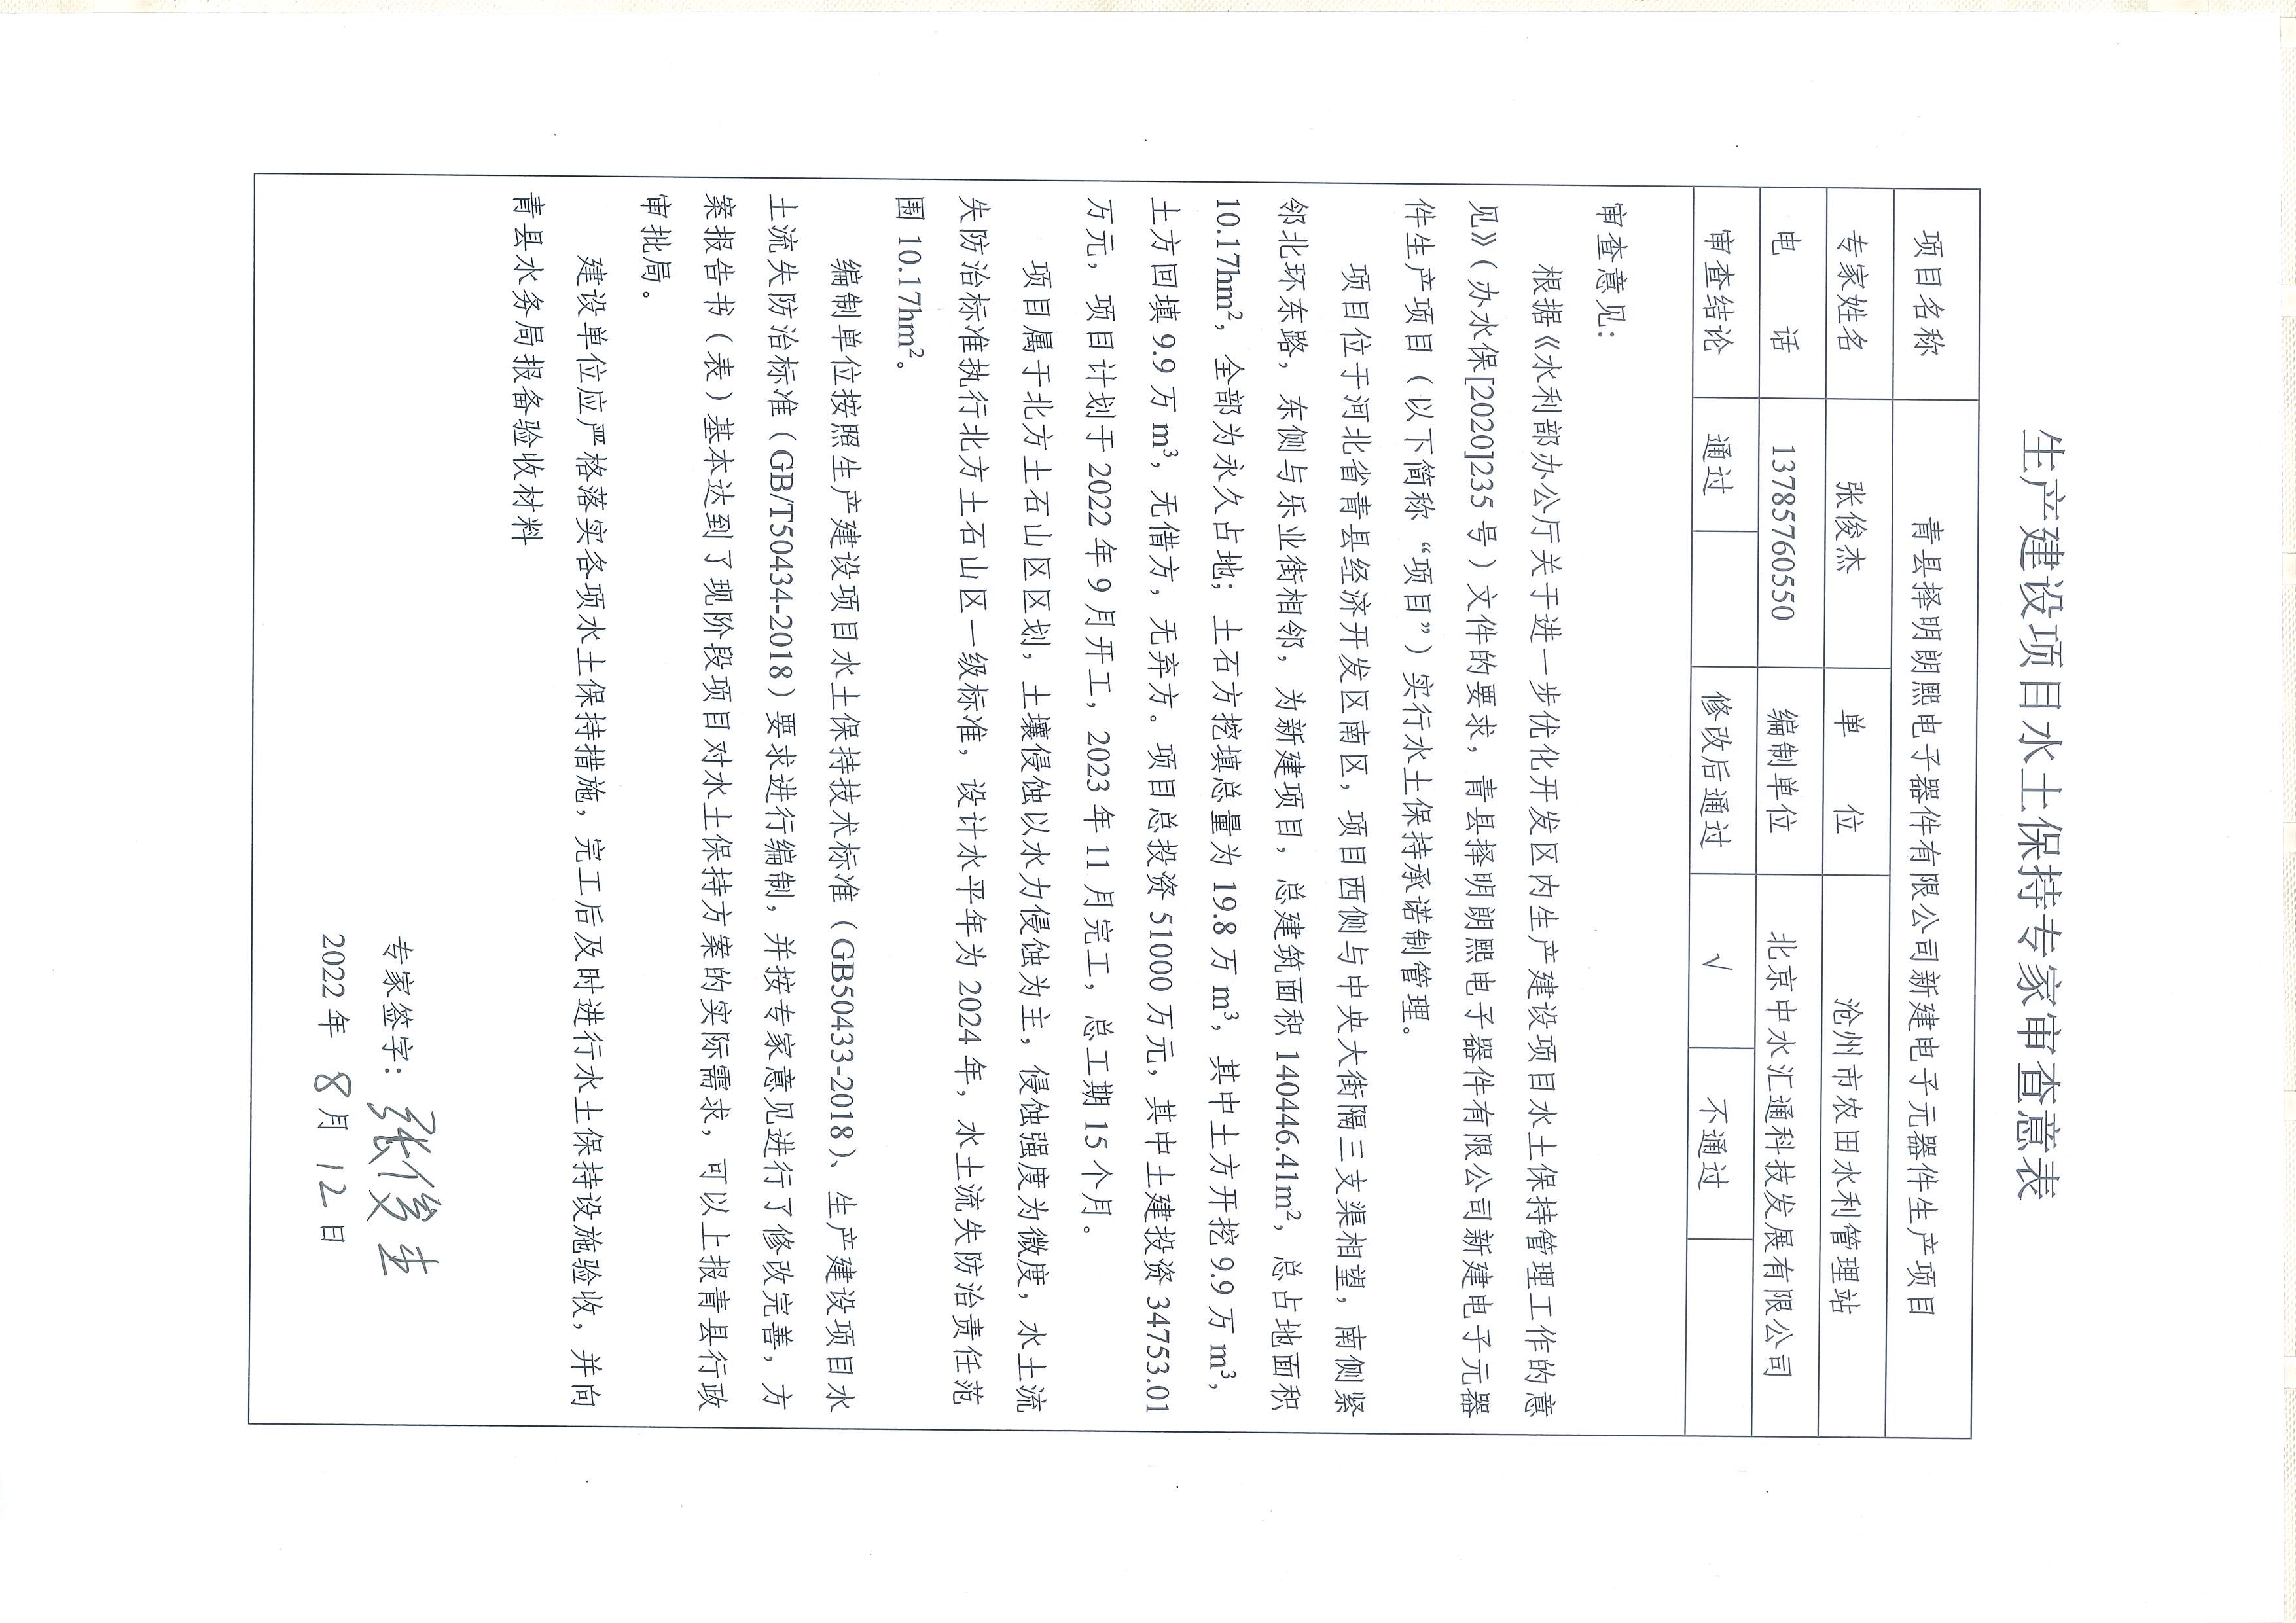 生产建设项目水土保持专家审查意表
项目名称 青县择明朗熙电子器件有限公司新建电子元器件生产项目
专家姓名 张俊杰 单 位 沧州市农田水利管理站
电 话 13785760550 编制单位 北京中水汇通科技发展有限公司
审查结论 通过 修改后通过 √ 不通过
审查意见：
根据《水利部办公厅关于进一步优化开发区内生产建设项目水土保持管理工作的意
见》（办水保[2020]235 号）文件的要求，青县择明朗熙电子器件有限公司新建电子元器
件生产项目（以下简称“项目”）实行水土保持承诺制管理。
项目位于河北省青县经济开发区南区，项目西侧与中央大街隔三支渠相望，南侧紧
邻北环东路，东侧与乐业街相邻，为新建项目，总建筑面积 140446.41m²，总占地面积
10.17hm²，全部为永久占地；土石方挖填总量为 19.8 万 m³，其中土方开挖 9.9 万 m³，
土方回填 9.9 万 m³，无借方，无弃方。项目总投资 51000 万元，其中土建投资 34753.01
万元，项目计划于 2022 年 9 月开工，2023 年 11 月完工，总工期 15 个月。
项目属于北方土石山区区划，土壤侵蚀以水力侵蚀为主，侵蚀强度为微度，水土流
失防治标准执行北方土石山区一级标准，设计水平年为 2024 年，水土流失防治责任范
围 10.17hm²。
编制单位按照生产建设项目水土保持技术标准（GB50433-2018）、生产建设项目水
土流失防治标准（GB/T50434-2018）要求进行编制，并按专家意见进行了修改完善，方
案报告书（表）基本达到了现阶段项目对水土保持方案的实际需求，可以上报青县行政
审批局。
建设单位应严格落实各项水土保持措施，完工后及时进行水土保持设施验收，并向
青县水务局报备验收材料
专家签字：张俊杰
2022 年 8 月 12 日